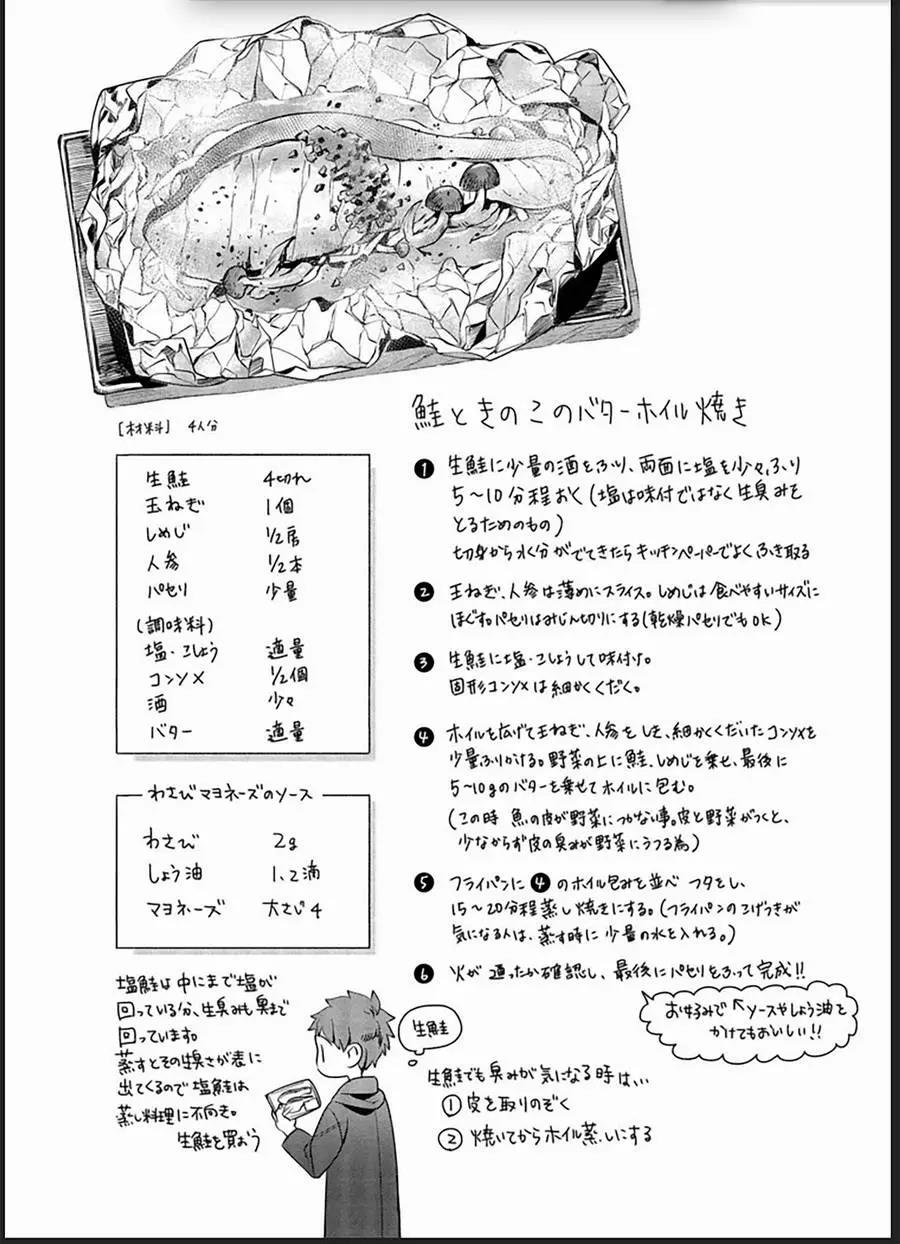 鮭ときのこのバターホイル焼き
[材料] 4人分
生鮭 4切れ
玉ねぎ 1個
しめじ 1/2房
人参 1/2本
パセリ 少量
(調味料)
塩・こしょう 適量
コンソメ 1/2個
酒 少々
バター 適量
わさびマヨネーズのソース
わさび 2g
しょう油 1、2滴
マヨネーズ 大さじ4
❶ 生鮭に少量の酒をふり、両面に塩を少々ふり
5〜10分程おく(塩は味付ではなく生臭みを
とるためのもの)
切身から水分がでてきたらキッチンペーパーでよくふき取る
❷ 玉ねぎ、人参は薄めにスライス。しめじは食べやすいサイズに
ほぐす。パセリはみじん切りにする(乾燥パセリでもOK)
❸ 生鮭に塩・こしょうして味付け。
固形コンソメは細かくくだく。
❹ ホイルを広げて玉ねぎ、人参をしき、細かくくだいたコンソメを
少量ふりかける。野菜の上に鮭、しめじを乗せ、最後に
5〜10gのバターを乗せてホイルに包む。
(この時 魚の皮が野菜につかない事。皮と野菜がつくと、
少なからず皮の臭みが野菜にうつる為)
❺ フライパンに❹のホイル包みを並べ フタをし、
15〜20分程蒸し焼きにする。(フライパンのこげつきが
気になる人は、蒸す時に少量の水を入れる。)
❻ 火が通ったか確認し、最後にパセリをふって完成!!
お好みで←ソースやしょう油を
かけてもおいしい!!
塩鮭は中にまで塩が
回っている分、生臭みも奥まで
回っています。
蒸すとその生臭さが表に
出てくるので塩鮭は
蒸し料理に不向き。
生鮭を買おう
生鮭
生鮭でも臭みが気になる時は、、、
① 皮を取りのぞく
② 焼いてからホイル蒸しにする